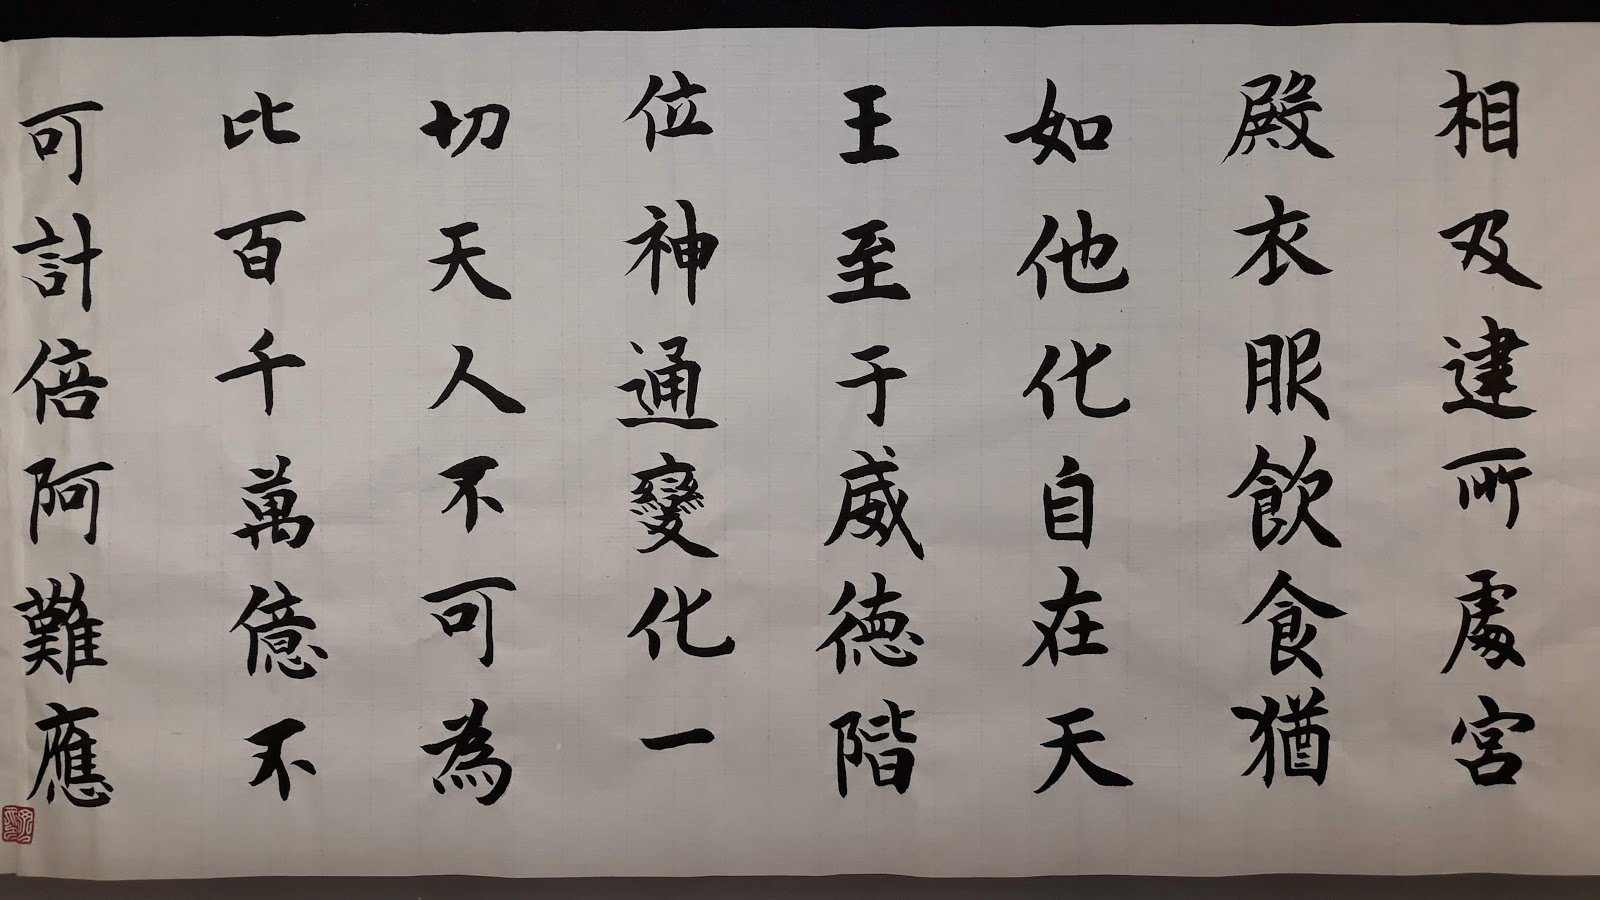 相及建所處宮
殿衣服飲食猶
如他化自在天
王至于威德階
位神通變化一
切天人不可為
比百千萬億不
可計倍阿難應